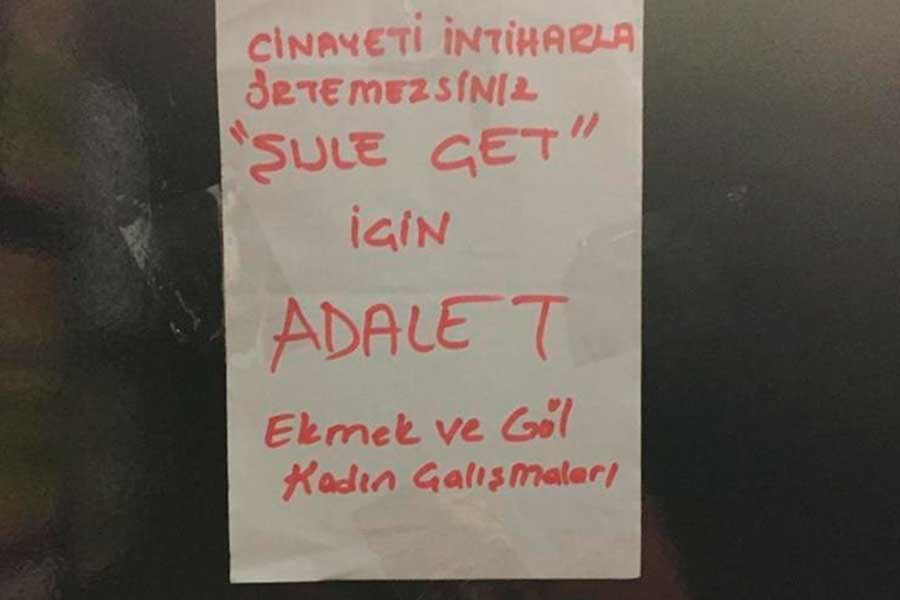 CİNAYETİ İNTİHARLA
ÖRTEMEZSİNİZ
"ŞULE ÇET"
İÇİN
ADALET
Ekmek ve Gül
Kadın Çalışmaları